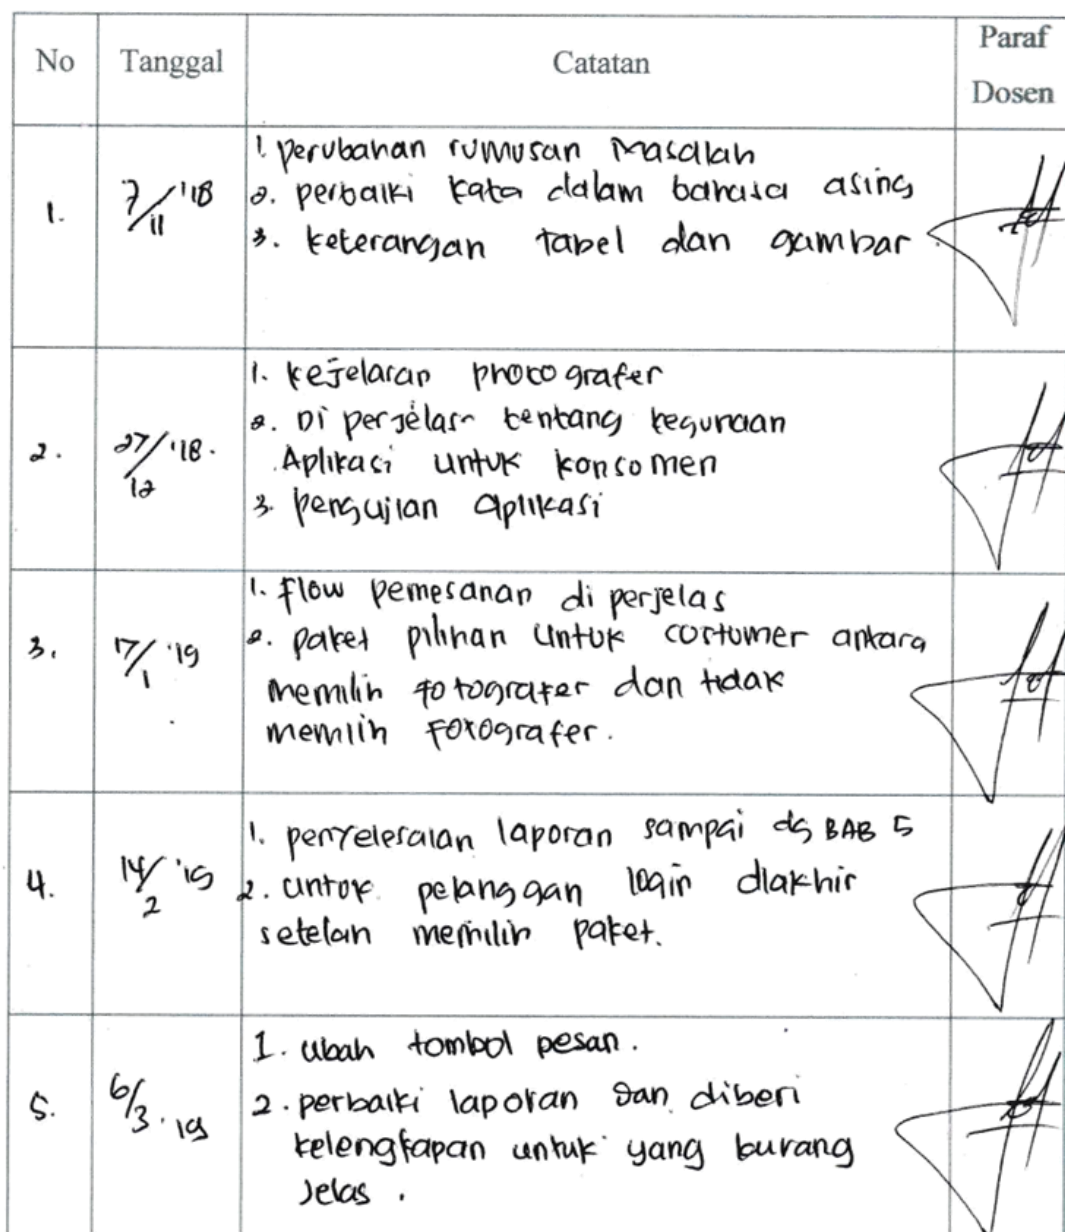 No Tanggal Catatan Paraf Dosen
1. 7/11 '18
1. perubahan rumusan masalah
2. perbaiki kata dalam bahasa asing
3. keterangan tabel dan gambar.
2. 27/12 '18.
1. kejelasan photografer
2. Di perjelas tentang kegunaan
Aplikasi untuk konsomen
3. pengujian aplikasi
3. 17/1 '19
1. flow pemesanan di perjelas
2. paket pilihan untuk costumer antara
memilih fotografer dan tidak
memilih fotografer.
4. 14/2 '19
1. penyelesaian laporan sampai dg BAB 5
2. untuk pelanggan login diakhir
setelah memilih paket.
5. 6/3 '19
1. ubah tombol pesan.
2. perbaiki laporan dan diberi
kelengkapan untuk yang kurang
jelas.